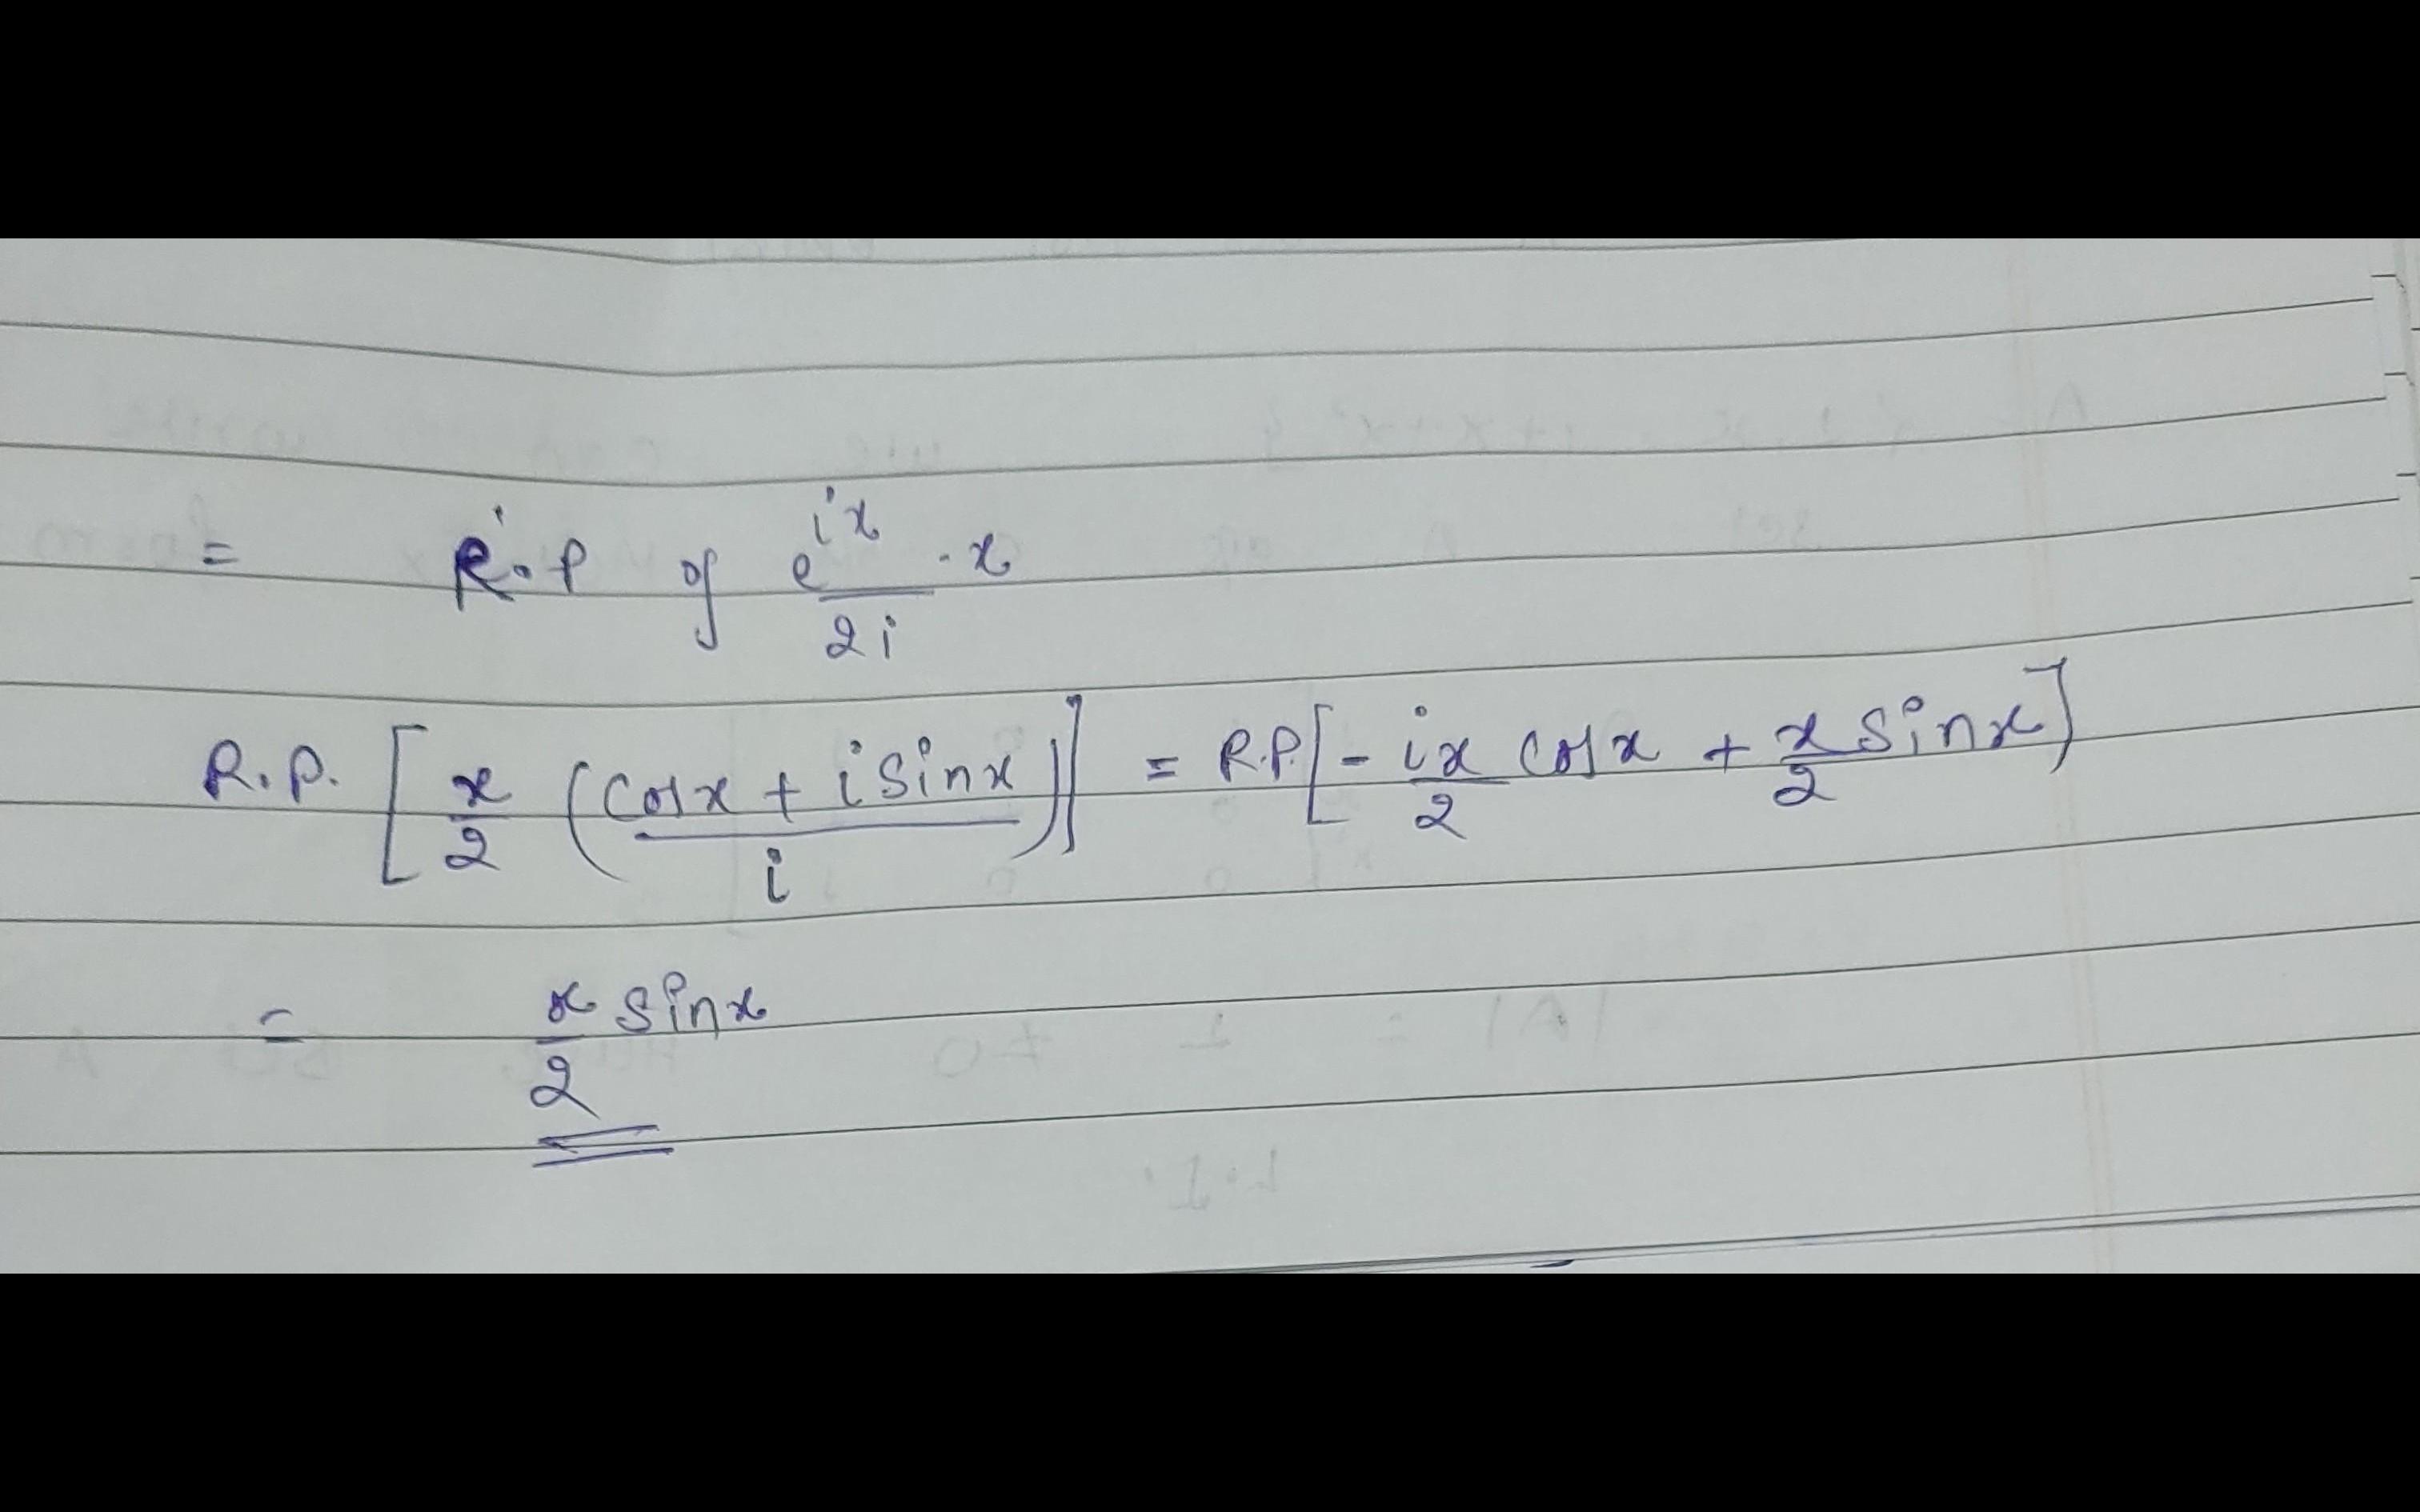 = R.P of e^{ix}/2i · x
R.P. [x/2 (cosx + i sinx / i)] = R.P. [- ix/2 cosx + x/2 sinx]
= x/2 sinx